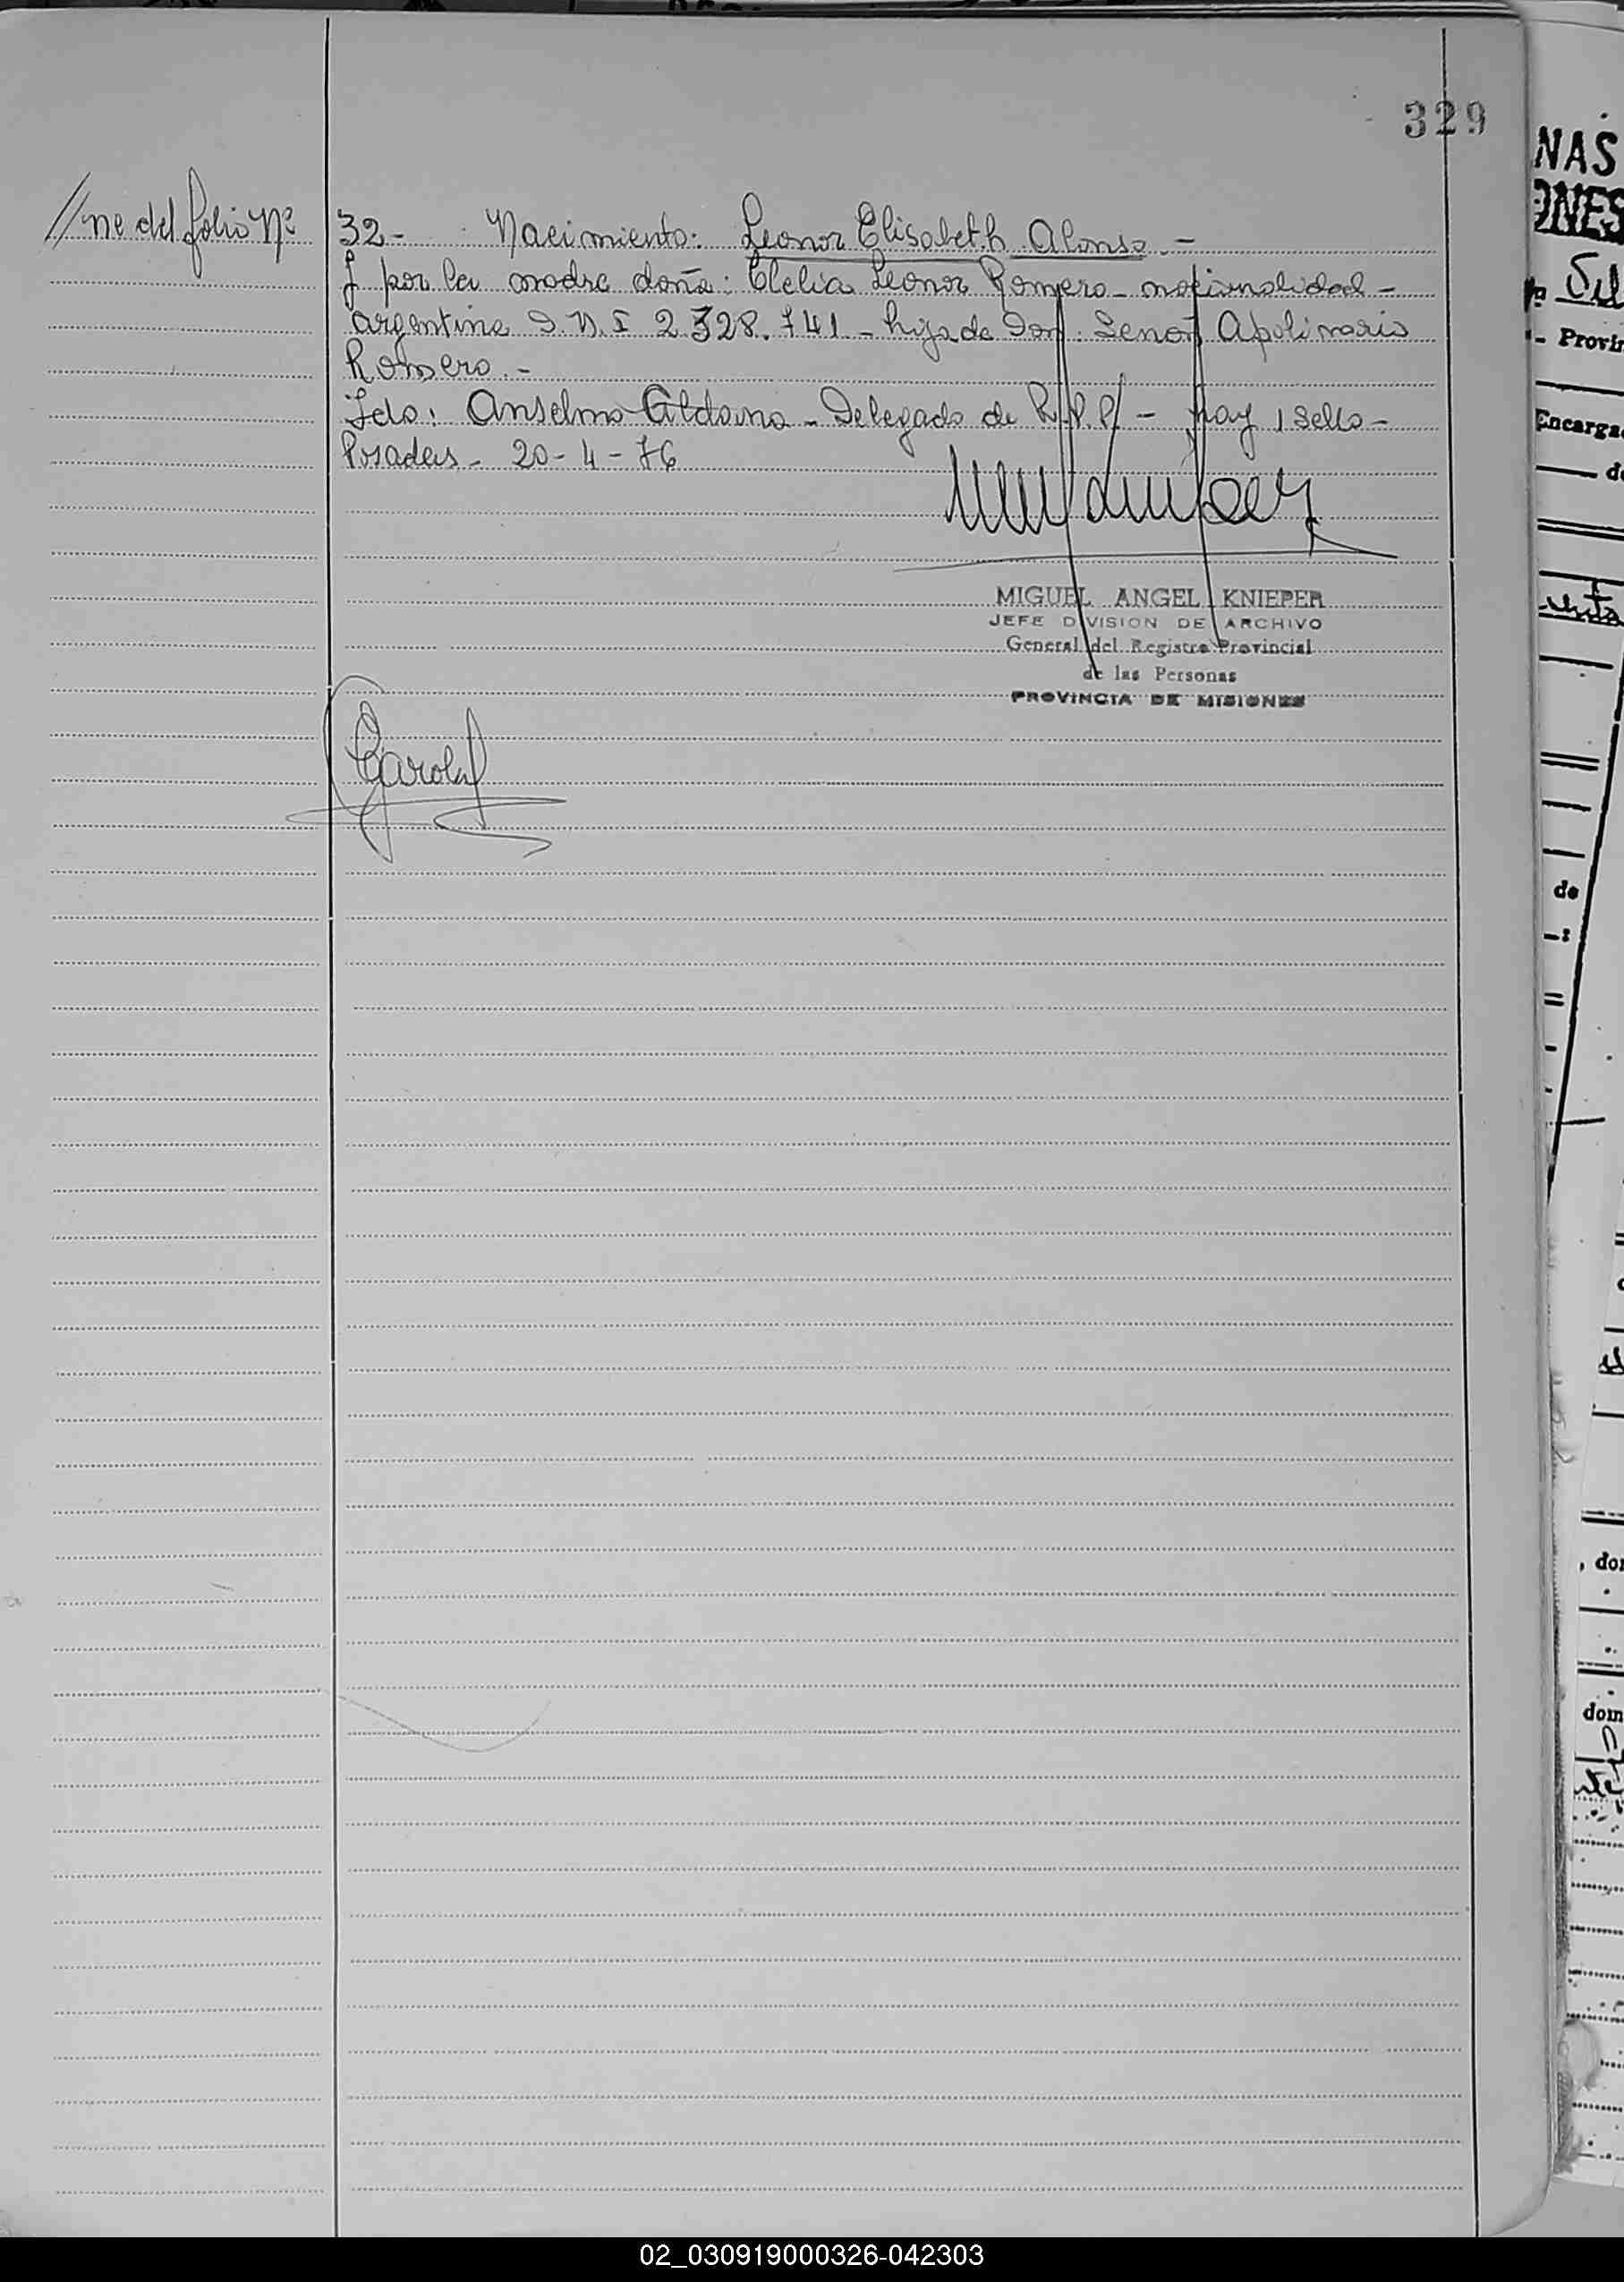 329
//ne del folio Nº 32- Nacimiento: Leonor Elisabeth Alonso.-
y por la madre doña: Clelia Leonor Romero - nacionalidad -
argentina D.N.I 2.328.741 - hija de Don: Lenor Apolinario
Romero.-
Fdo: Anselmo Aldana - Delegado de R.P.P. - hay 1 sello -
Posadas - 20-4-76
MIGUEL ANGEL KNIEPER
JEFE DIVISION DE ARCHIVO
General del Registro Provincial
de las Personas
PROVINCIA DE MISIONES
Carola
NAS
ONES
- Provin
Encarga
de
de
, do
dom
02_030919000326-042303